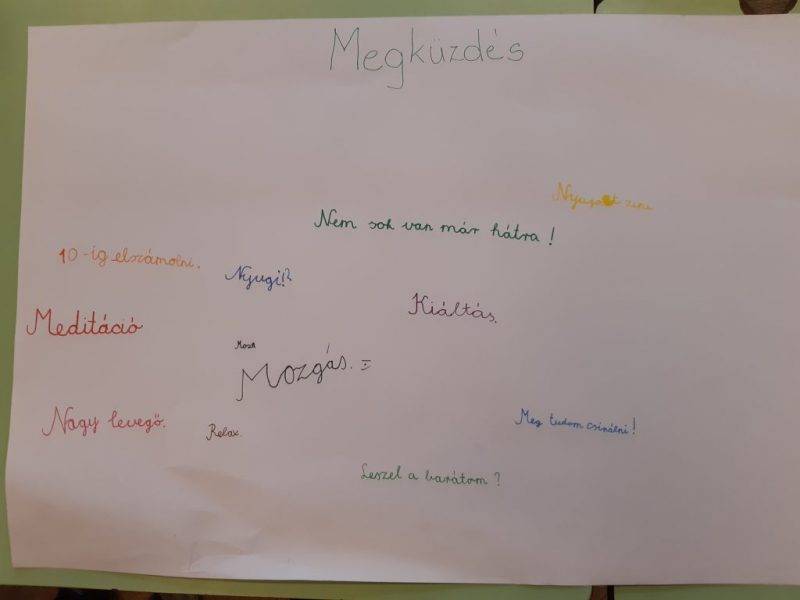 Megküzdés
Nyugodt zene
Nem sok van már hátra!
10-ig elszámolni.
Nyugi!?
Kiáltás.
Meditáció
Mozgás. :)
Nagy levegő.
Relax.
Meg tudom csinálni!
Leszel a barátom?